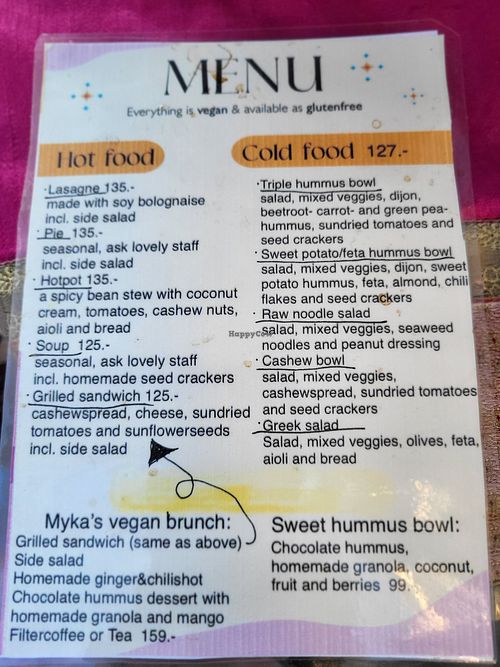 MENU
Everything is vegan & available as glutenfree
Hot food
· Lasagne 135.-
made with soy bolognaise
incl. side salad
· Pie 135.-
seasonal, ask lovely staff
incl. side salad
· Hotpot 135.-
a spicy bean stew with coconut
cream, tomatoes, cashew nuts,
aioli and bread
· Soup 125.-
seasonal, ask lovely staff
incl. homemade seed crackers
· Grilled sandwich 125.-
cashewspread, cheese, sundried
tomatoes and sunflowerseeds
incl. side salad
Cold food 127.-
· Triple hummus bowl
salad, mixed veggies, dijon,
beetroot- carrot- and green pea-
hummus, sundried tomatoes and
seed crackers
· Sweet potato/feta hummus bowl
salad, mixed veggies, dijon, sweet
potato hummus, feta, almond, chili
flakes and seed crackers
· Raw noodle salad
salad, mixed veggies, seaweed
noodles and peanut dressing
· Cashew bowl
salad, mixed veggies,
cashewspread, sundried tomatoes
and seed crackers
· Greek salad
Salad, mixed veggies, olives, feta,
aioli and bread
HappyCow
Myka's vegan brunch:
Grilled sandwich (same as above)
Side salad
Homemade ginger&chilishot
Chocolate hummus dessert with
homemade granola and mango
Filtercoffee or Tea 159.-
Sweet hummus bowl:
Chocolate hummus,
homemade granola, coconut,
fruit and berries 99.-